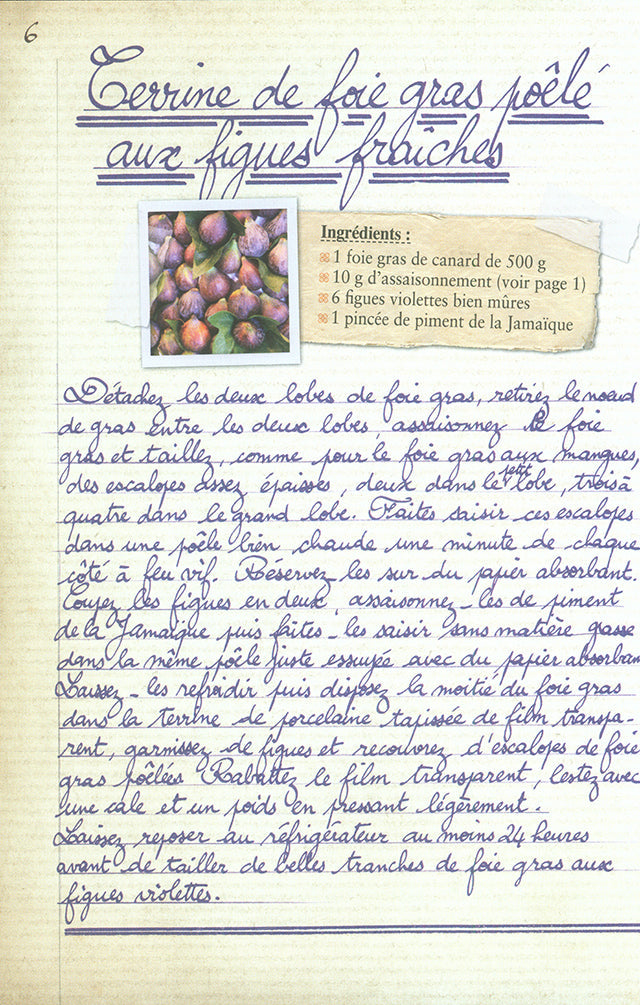 6
Terrine de foie gras poêlé
aux figues fraîches
Ingrédients :
1 foie gras de canard de 500 g
10 g d'assaisonnement (voir page 1)
6 figues violettes bien mûres
1 pincée de piment de la Jamaïque
Détachez les deux lobes de foie gras, retirez le nœud
de gras entre les deux lobes, assaisonnez le foie
gras et taillez, comme pour le foie gras aux mangues,
des escalopes assez épaisses, deux dans le petit lobe, trois à
quatre dans le grand lobe. Faites saisir ces escalopes
dans une poêle bien chaude une minute de chaque
côté à feu vif. Réservez les sur du papier absorbant.
Coupez les figues en deux, assaisonnez-les de piment
de la Jamaïque puis faites-les saisir sans matière gasse
dans la même poêle juste essuyée avec du papier absorban
Laissez-les refroidir puis disposez la moitié du foie gras
dans la terrine de porcelaine tapissée de film transpa-
rent, garnissez de figues et recouvrez d'escalopes de foie
gras poêlées Rabattez le film transparent, lestez avec
une cale et un poids en pressant légèrement.
Laissez reposer au réfrigérateur au moins 24 heures
avant de tailler de belles tranches de foie gras aux
figues violettes.